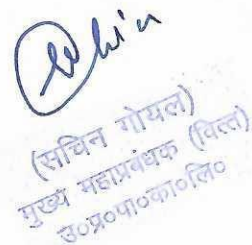 (सचिन गोयल)
मुख्य महाप्रबंधक (वित्त)
उ०प्र०पा०का०लि०